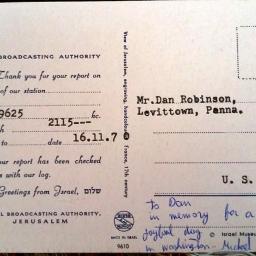 BROADCASTING AUTHORITY
Thank you for your report on
of our station.
9625 kc.
2115---
to date 16.11.7
our report has been checked
with our log.
Greetings from Israel, שלום
BROADCASTING AUTHORITY
JERUSALEM
View of Jerusalem, engraving, France, 17th century
MADE IN ISRAEL
9610
Mr.Dan Robinson,
Levittown, Panna.
U. S.
to Dan
in memory for a
joyful day
in washington - Michael
© Israel Museum